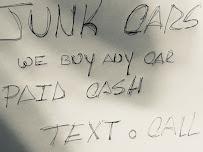 JUNK CARS
WE BUY ANY CAR
PAID CASH
TEXT o CALL